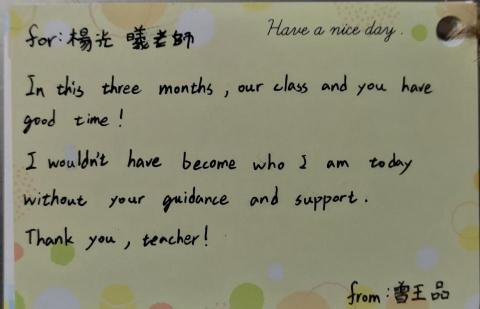 Have a nice day.
for: 楊光曦老師
In this three months, our class and you have
good time!
I wouldn't have become who I am today
without your guidance and support.
Thank you, teacher!
from: 曾王品